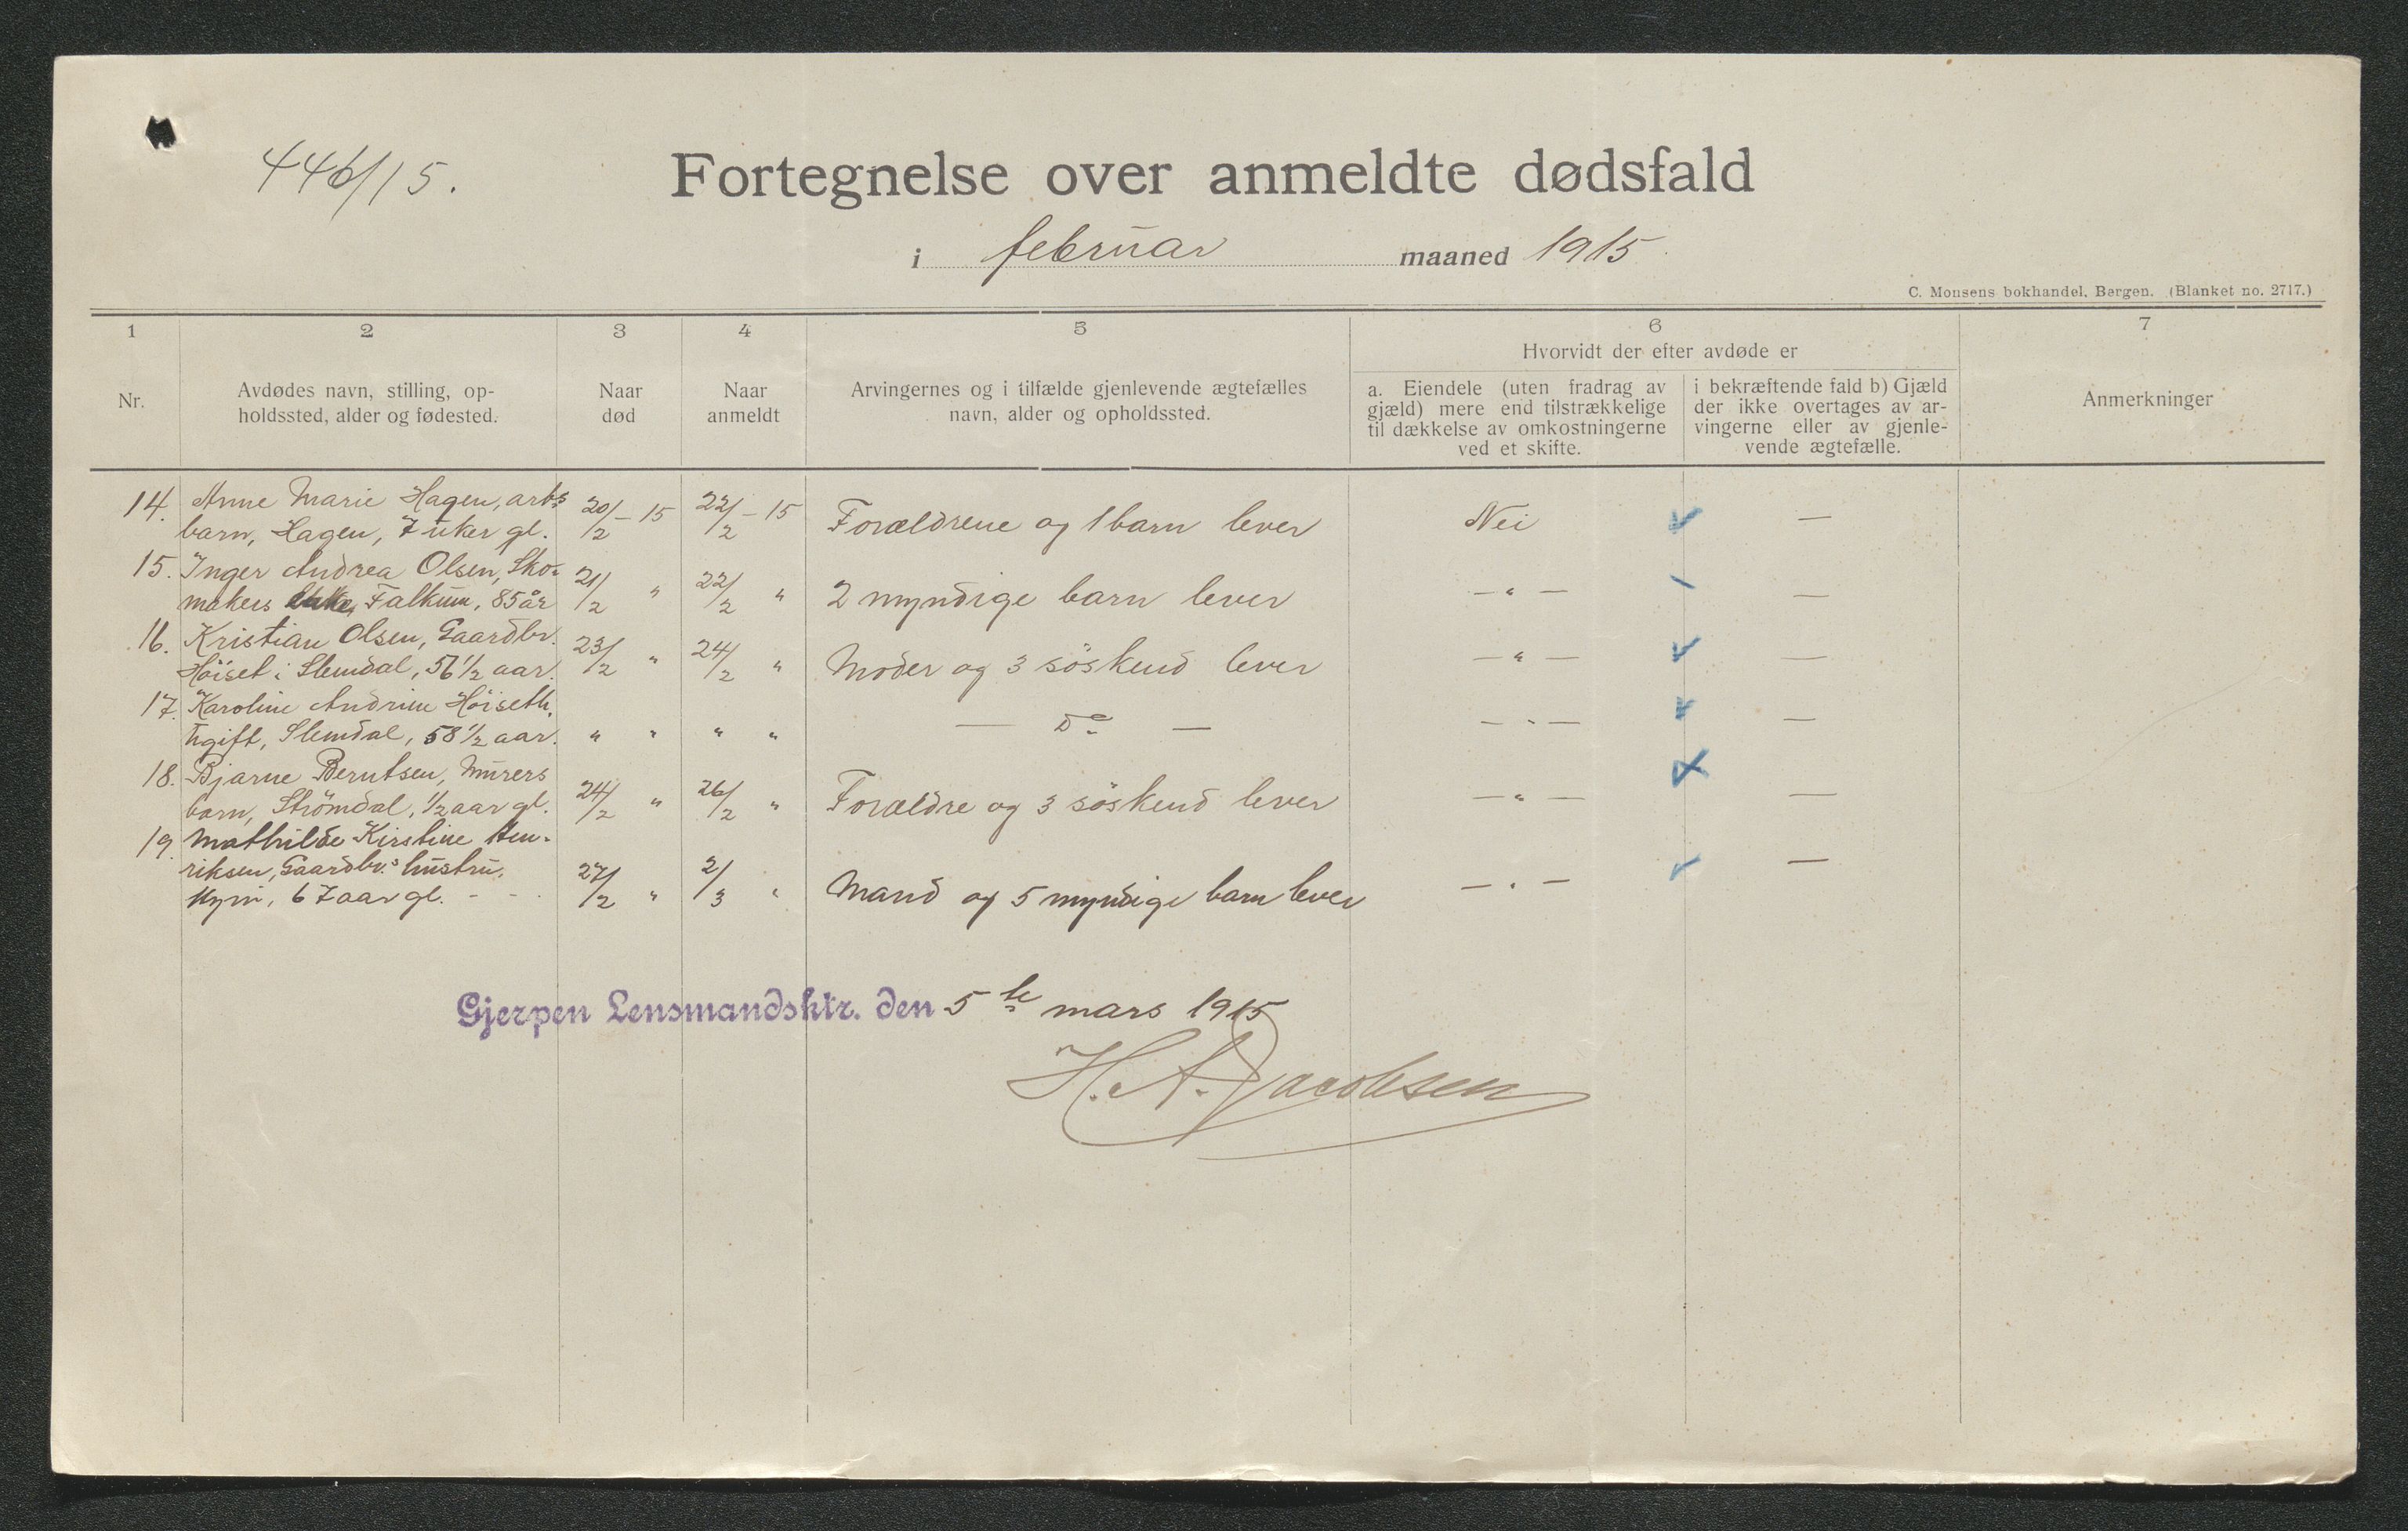 446/15.
Fortegnelse over anmeldte dødsfald
i februar maaned 1915
C. Monsens bokhandel, Bergen. (Blanket no. 2717.)
1 2 3 4 5 6 7
Hvorvidt der efter avdøde er
Nr.
Avdødes navn, stilling, op-
holdssted, alder og fødested.
Naar
død
Naar
anmeldt
Arvingernes og i tilfælde gjenlevende ægtefælles
navn, alder og opholdssted.
a. Eiendele (uten fradrag av
gjæld) mere end tilstrækkelige
til dækkelse av omkostningerne
ved et skifte.
i bekræftende fald b) Gjæld
der ikke overtages av ar-
vingerne eller av gjenle-
vende ægtefælle.
Anmerkninger
14. Anne Marie Hagen, arbs
barn, Hagen, 7 uker gl. 20/2 – 15 22/2 – 15 Forældrene og 1 barn lever Nei —
15. Inger Andrea Olsen, Sko-
makers enke, Falkum, 85 år 21/2 " 22/2 " 2 myndige barn lever — " — —
16. Kristian Olsen, Gaardbr.
Höiset i Slemdal, 56 1/2 aar. 23/2 " 24/2 " Moder og 3 söskend lever — " — —
17. Karoline Andrine Höiseth,
ugift, Slemdal, 58 1/2 aar. " " " " — Do — — " — —
18. Bjarne Berntsen, Murers
barn, Strömdal, 1/2 aar gl. 24/2 " 26/2 " Forældre og 3 söskend lever — " — —
19. Mathilde Kirstine Hen-
riksen, Gaardbr.s hustru,
67 aar gl. - - 27/2 " 2/3 " Mand og 5 myndige barn lever — " — —
Gjerpen Lensmandsktr. den 5te mars 1915
H. A. Jacobsen